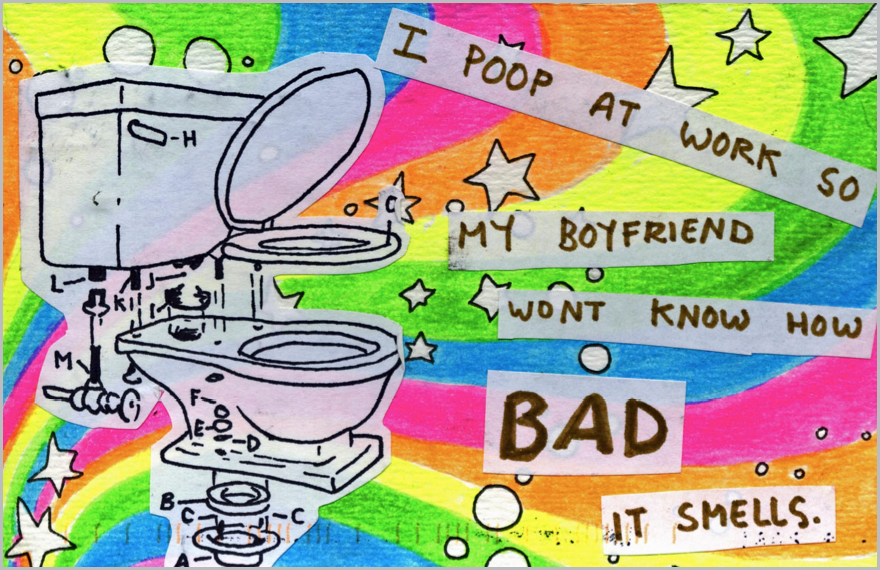 I POOP AT WORK SO
MY BOYFRIEND
WONT KNOW HOW
BAD
IT SMELLS.
H
G
L
J
K
I
M
F
E
D
B
C
C
A